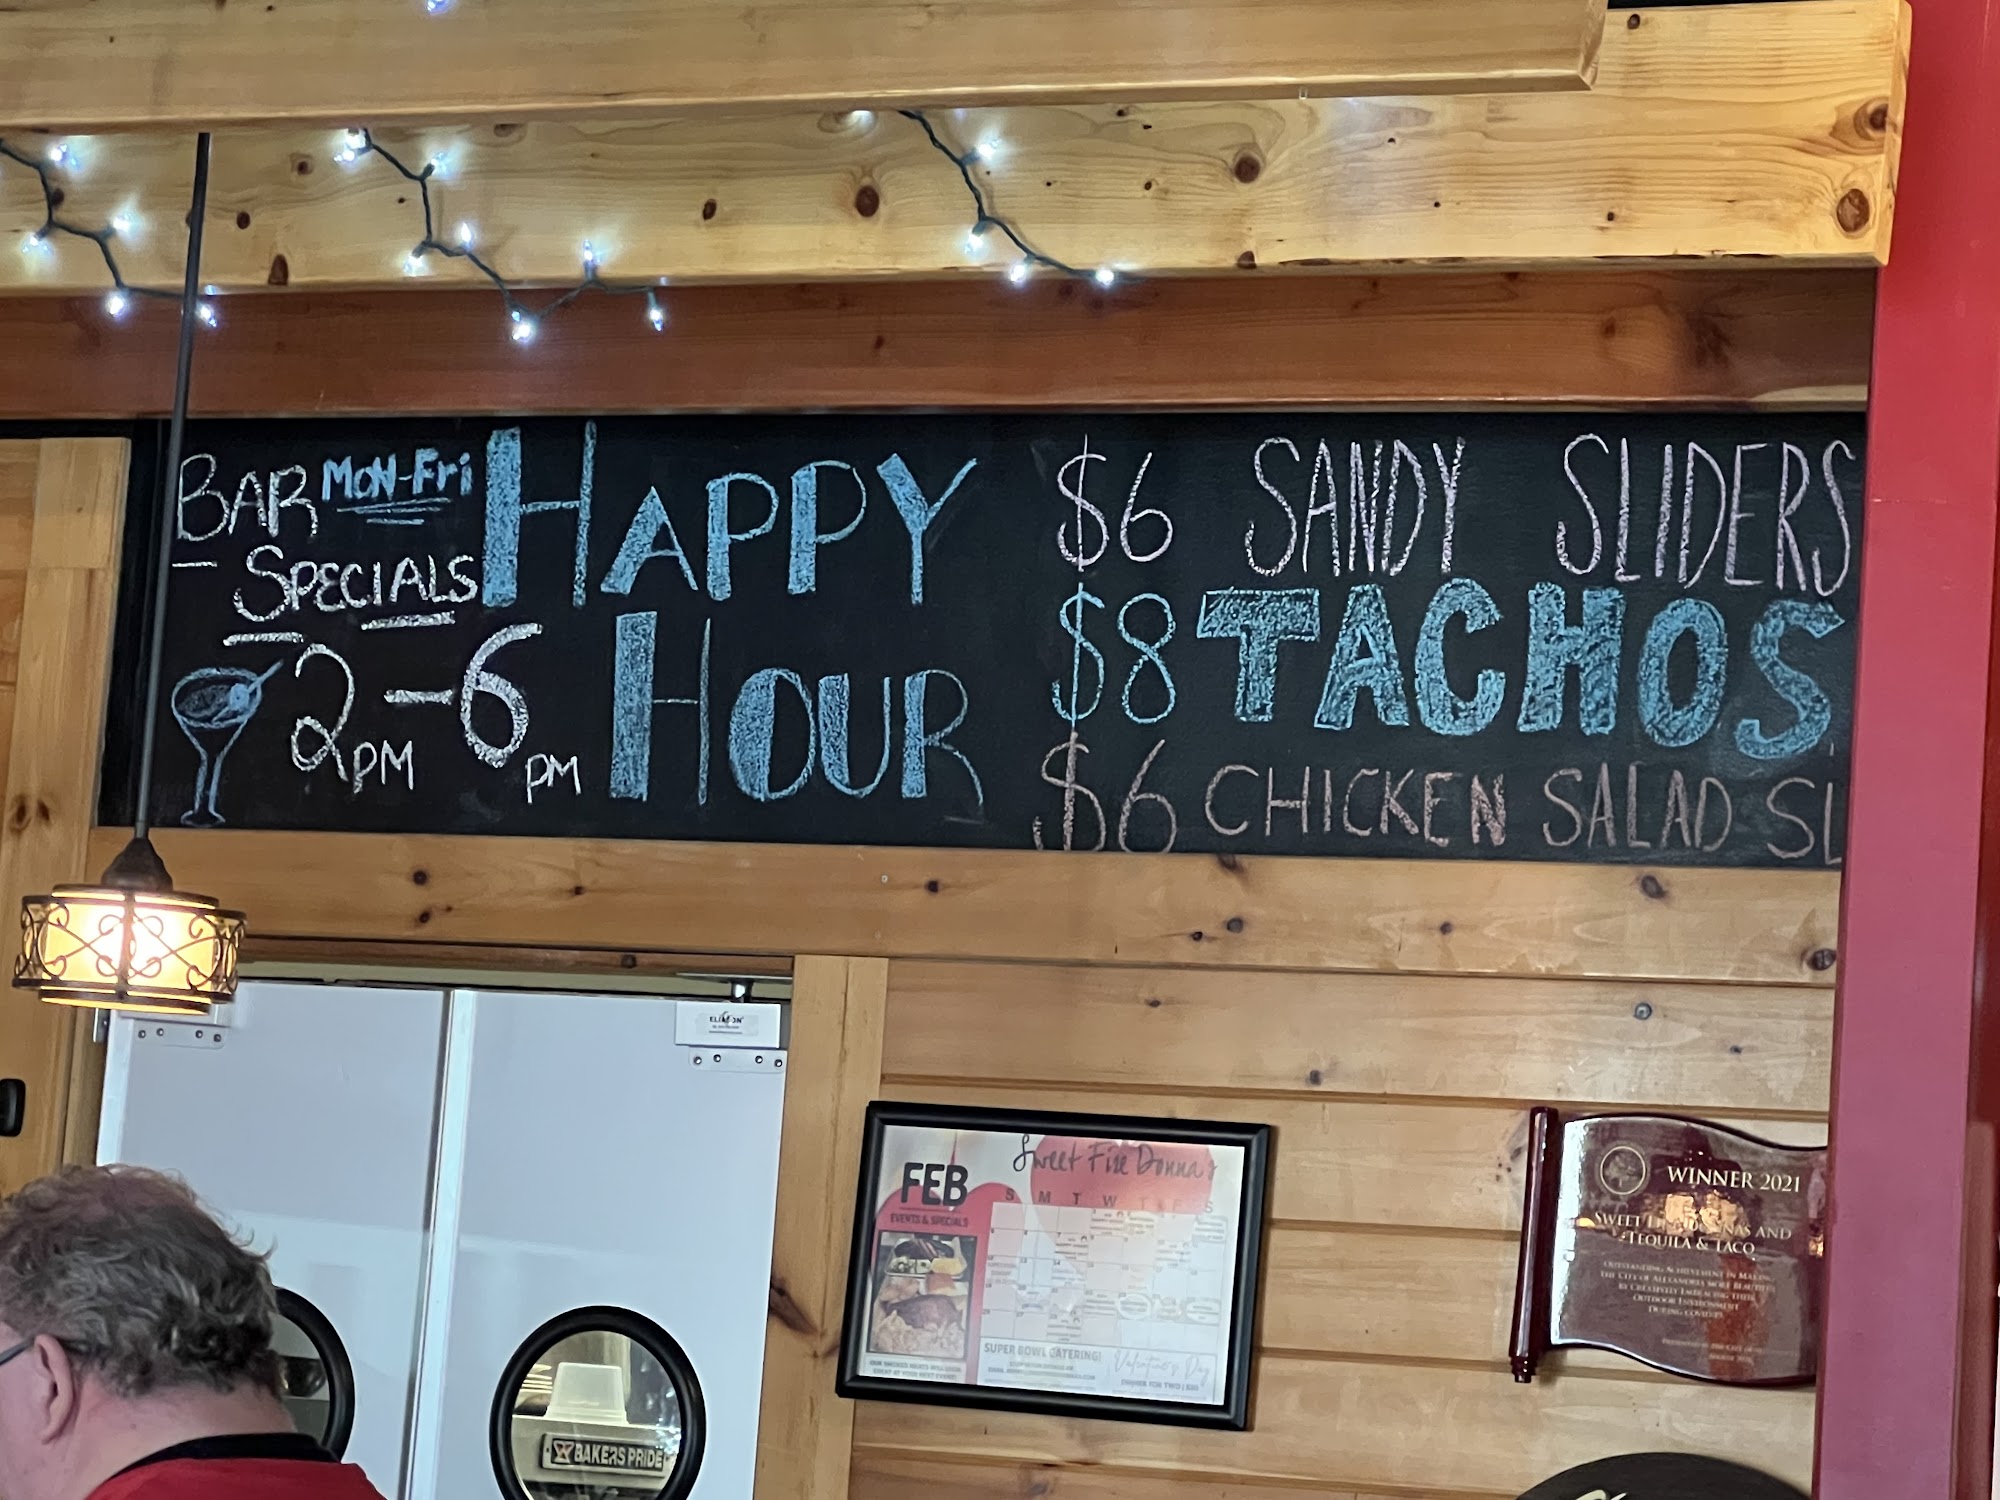 BAR MON-Fri
SPECIALS
2PM - 6PM
HAPPY
HOUR
$6 SANDY SLIDERS
$8 TACHOS
$6 CHICKEN SALAD SL
BAKERS PRIDE
FEB
EVENTS & SPECIALS
Sweet Fire Donna's
S M T W T F S
SUPER BOWL CATERING!
Valentine's Day
DINNER FOR TWO
WINNER 2021
SWEET FIRE DONNAS AND
TEQUILA & TACO
OUTSTANDING ACHIEVEMENT IN MAKING
THE CITY OF ALEXANDRIA MORE BEAUTIFUL
BY CREATIVELY EMBRACING THEIR
OUTDOOR ENVIRONMENT
DURING COVID19